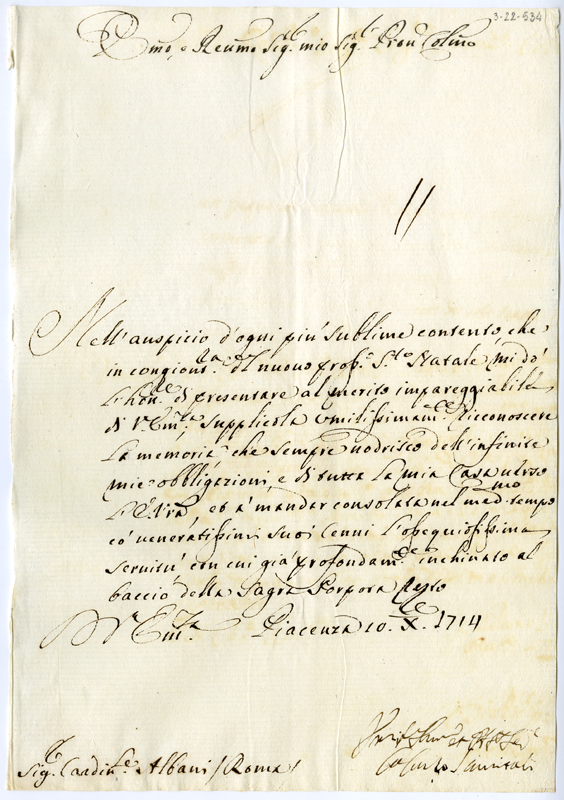 3-22-534
Emo, e Reumo Sig.r mio Sig.r Pron. Colmo
Nell'auspicio d'ogni più sublime contento, che
in congiont.ra del nuovo pros.o S.to Natale, mi dò
l'hon.re di presentare al merito impareggiabile
di V. Em.za, supplicola umilissimam.te riconoscere
la memoria che sempre nodrisco dell'infinite
mie obbligazioni, e di tutta la mia Casa verso
et à mandar consolata nel med.mo tempo
co' veneratissimi suoi Cenni l'ossequiosissima
servitù con cui già profondam.te inchinato al
baccio della Sagra Porpora resto
D V. Em.za Piacenza 10. X.bre 1714
Sig.r Cardin.le Albani / Roma /